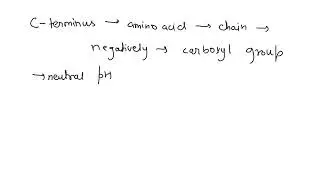 C-terminus → amino acid → chain →
negatively → carboxyl group
→ neutral pH